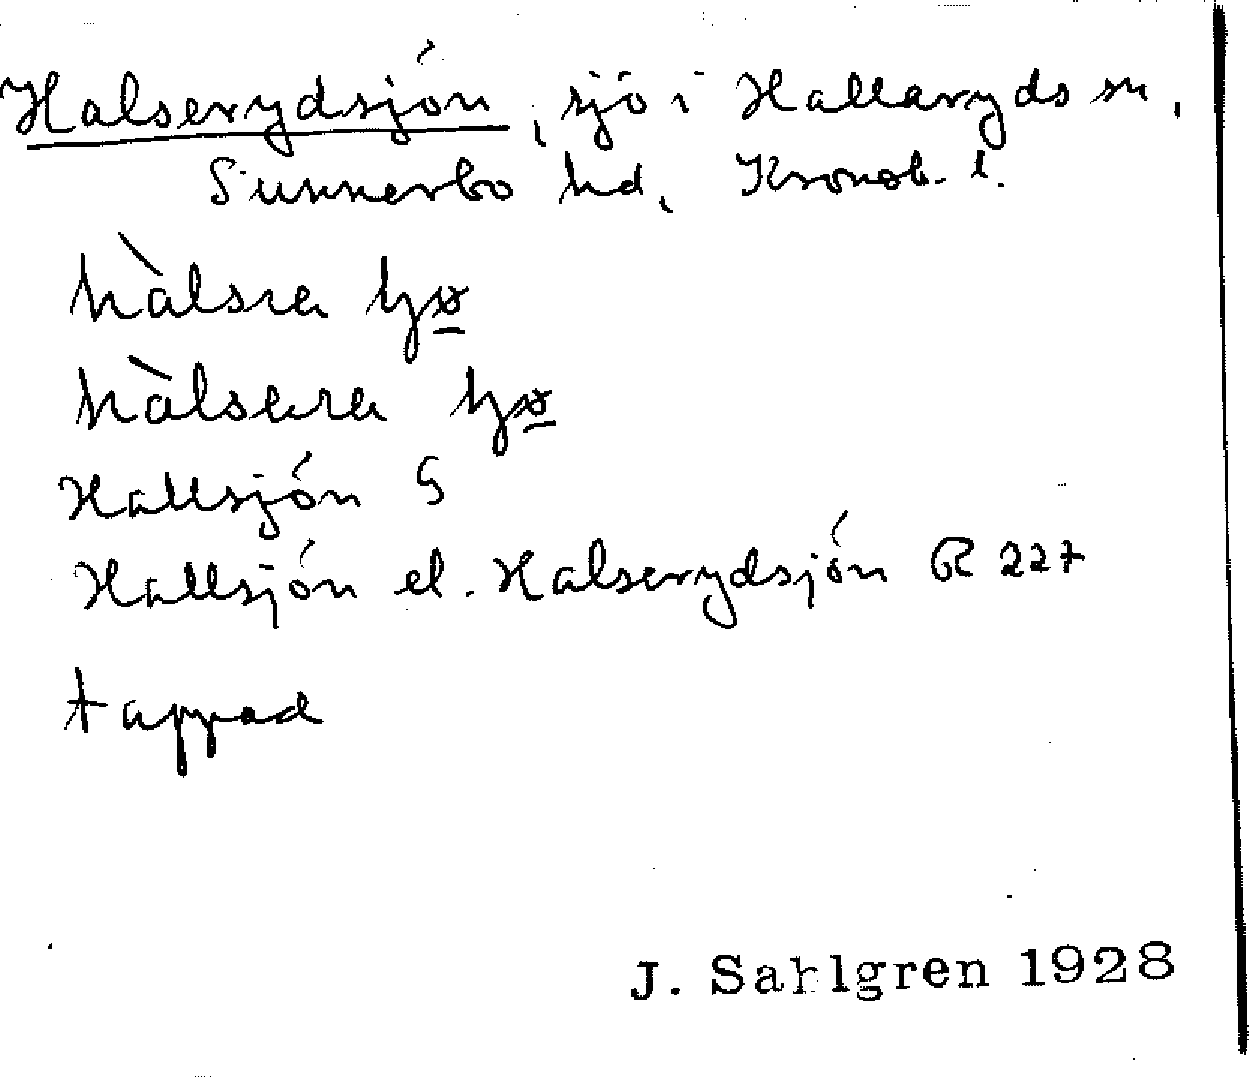 Halserydsjön, sjö i Hallaryds sn,
Sunnerbo hd, Kronob. l.
hàlsra
hàlsera
Hallsjön S
Hallsjön el. Halserydsjön R 227
tappad
J. Sahlgren 1928